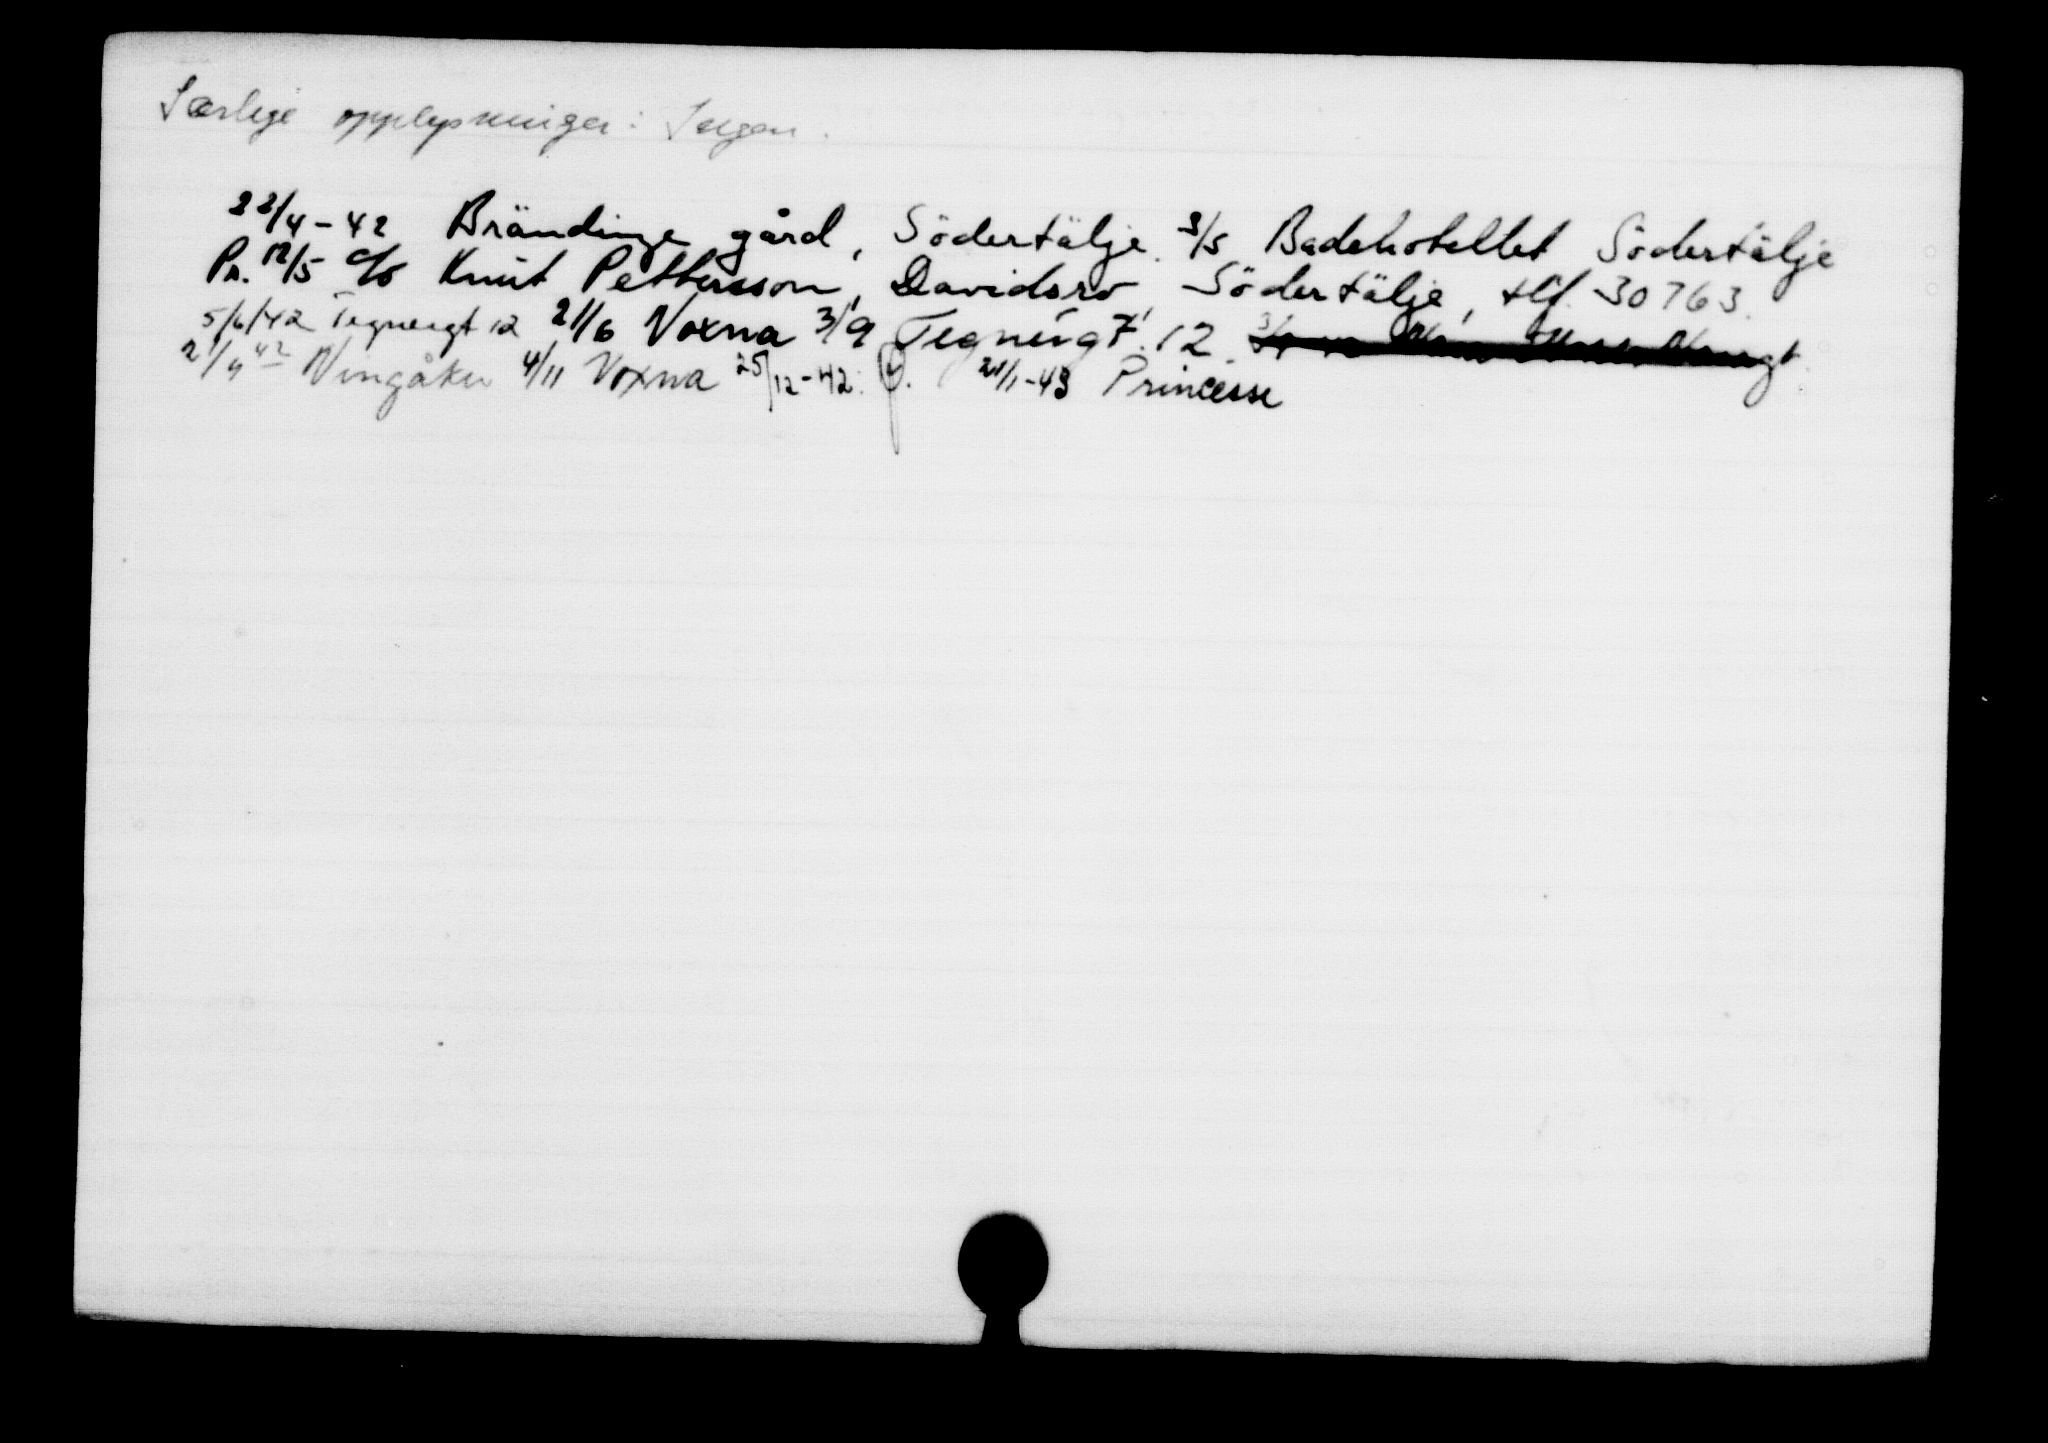 Særlige opplysninger: Ingen.
22/4-42 Brändinge gård, Södertälje. 3/5 Badehotellet Södertälje
Pr. 12/5 c/o Knut Pettersson, Davidsro, Södertälje, tlf. 30763.
5/6/42 Tegnergt 12 21/6 Voxna 3/9 Tegnérgt. 12.
2/9 42 Vingåker 4/11 Voxna 25/12-42. 21/1-43 Princesse